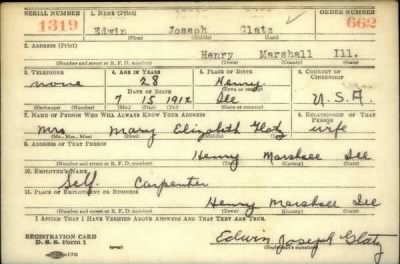 SERIAL NUMBER 1. NAME (Print) ORDER NUMBER
1319 Edwin Joseph Glatz 662
(First) (Middle) (Last)
2. ADDRESS (Print)
Henry Marshall Ill.
(Number and street or R. F. D. number) (Town) (County) (State)
3. TELEPHONE 4. AGE IN YEARS 5. PLACE OF BIRTH 6. COUNTRY OF CITIZENSHIP
none 28 Henry
DATE OF BIRTH
7 15 1912 Ill U.S.A.
(Exchange) (Number) (Mo.) (Day) (Yr.) (Town or county) (State or country)
7. NAME OF PERSON WHO WILL ALWAYS KNOW YOUR ADDRESS 8. RELATIONSHIP OF THAT PERSON
Mrs Mary Elizabeth Glatz wife
(Mr., Mrs., Miss) (First) (Middle) (Last)
9. ADDRESS OF THAT PERSON
Henry Marshall Ill
(Number and street or R. F. D. number) (Town) (County) (State)
10. EMPLOYER'S NAME
Self Carpenter
11. PLACE OF EMPLOYMENT OR BUSINESS
Henry Marshall Ill
(Number and street or R. F. D. number) (Town) (County) (State)
I AFFIRM THAT I HAVE VERIFIED ABOVE ANSWERS AND THAT THEY ARE TRUE.
REGISTRATION CARD
D. S. S. Form 1 Edwin Joseph Glatz
(Registrant's signature)